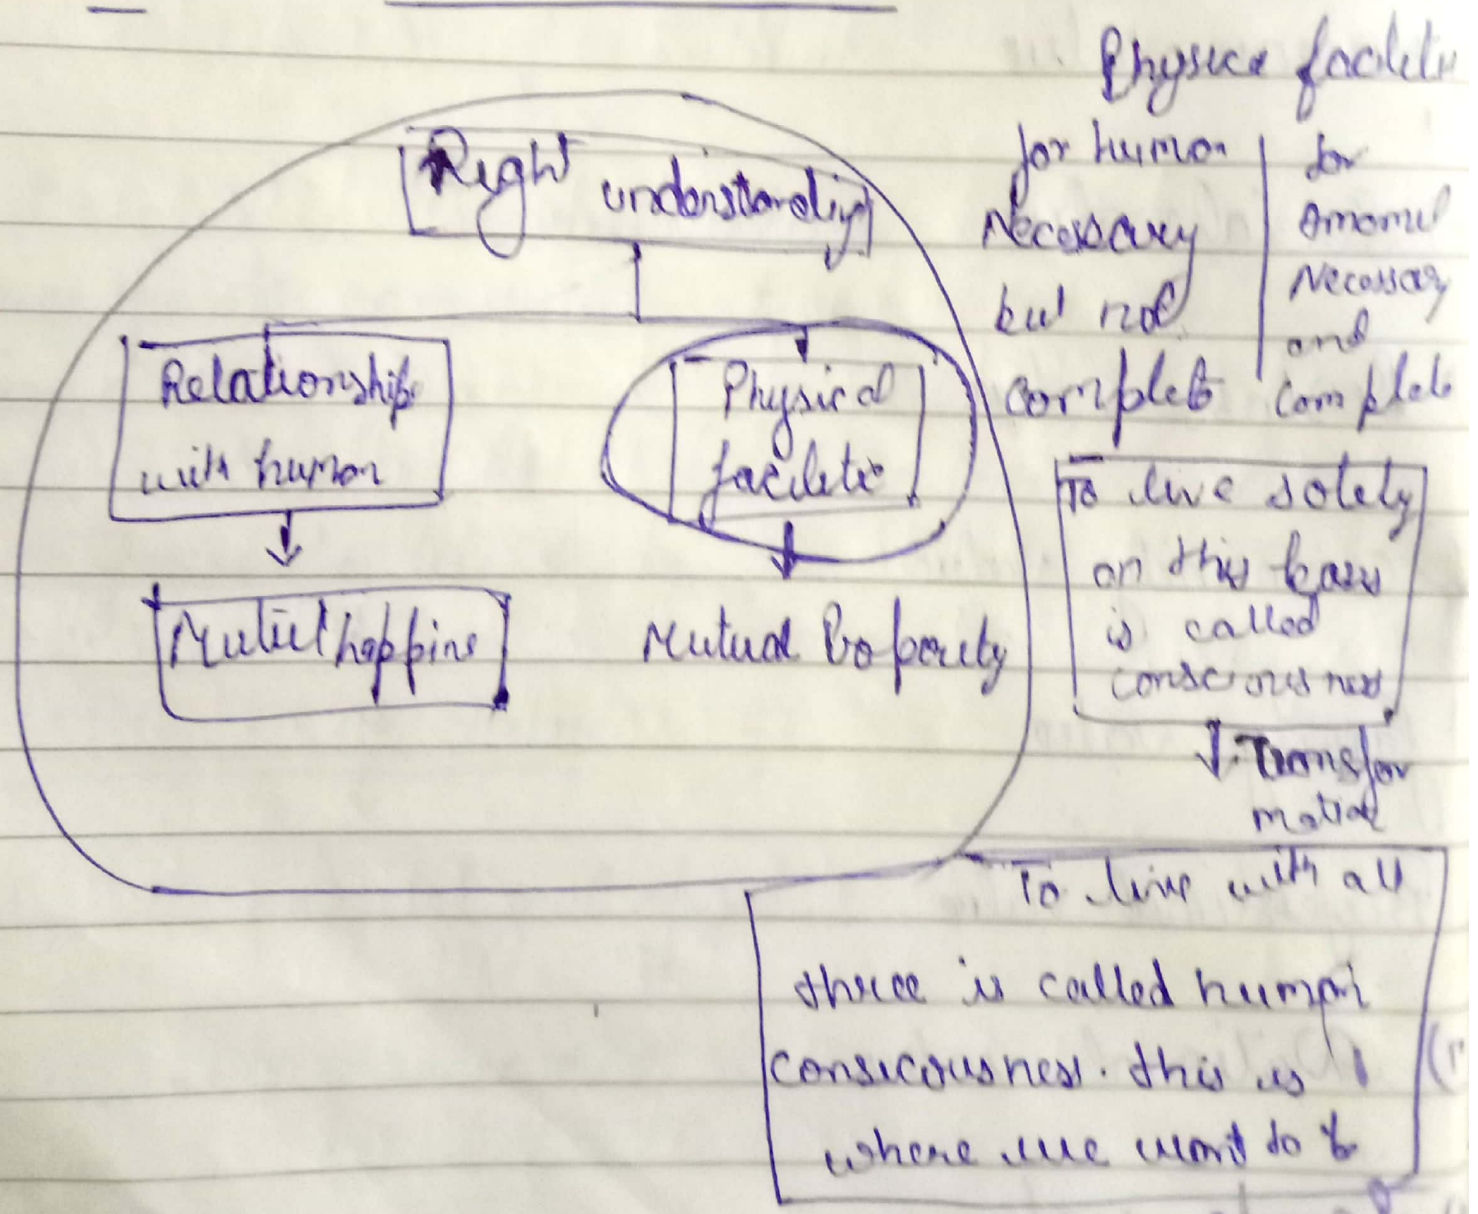 Right understanding
Relationship
with human
Physical
facilite
Mutuel happins
Mutual
Physica facilit
for human
Necessary
but not
complete
for
Necessary
and
complete
To live solely
on this basis
is called
consciousness
Transfor
mation
To live with all
three is called human
consciousness. this is
where we want to b